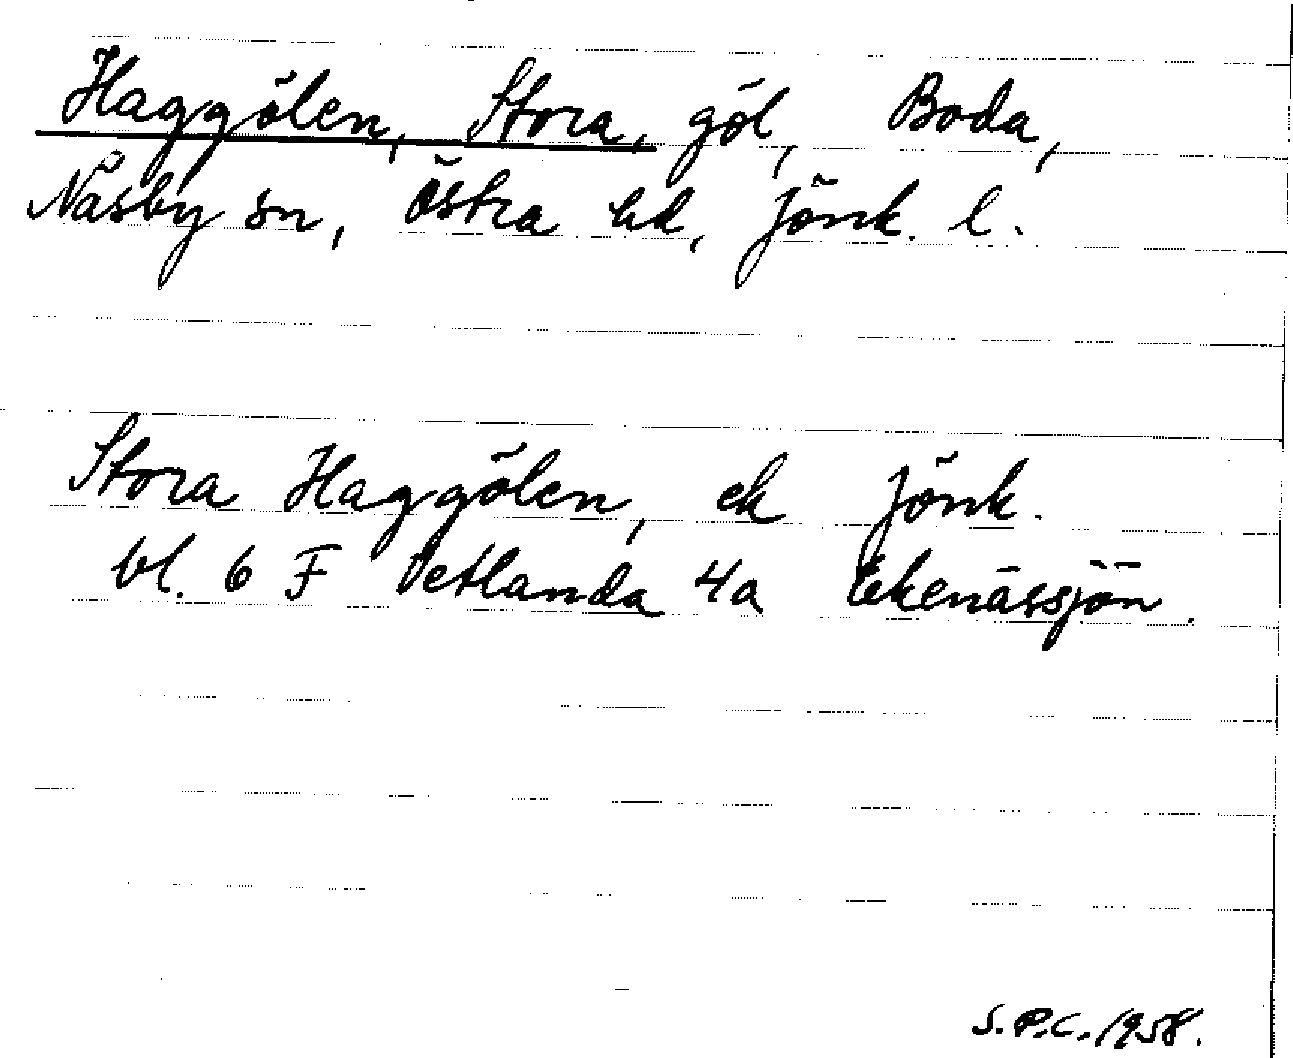 Haggölen, Stora, göl, Boda,
Näsby sn, Östra hd, Jönk. l.
Stora Haggölen, ek Jönk.
bl. 6 F Vetlanda 4a Ekenässjön.
S.P.C. 1958.